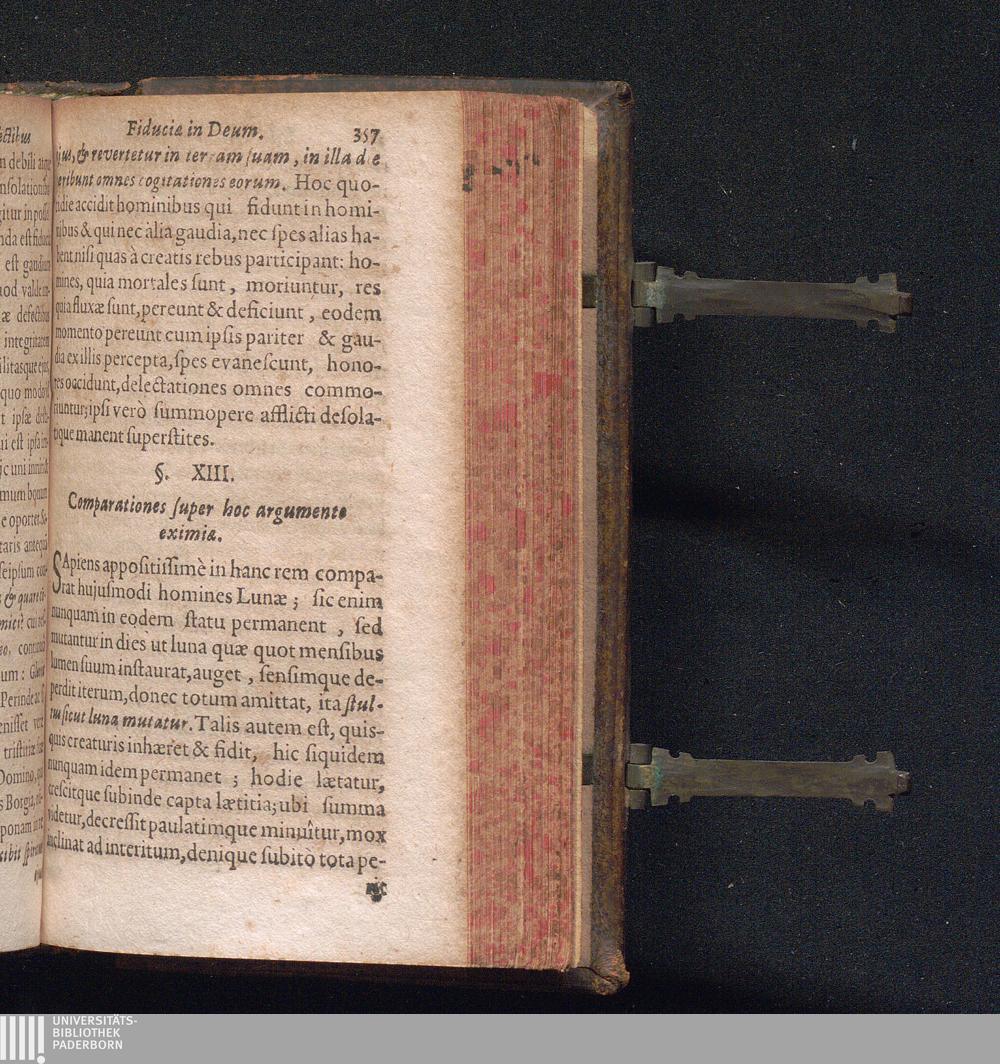 Fiduciæ in Deum. 357
jus, & revertetur in terram ſuam, in illa die
eribunt omnes cogitationes eorum. Hoc quo-
die accidit hominibus qui fidunt in homi-
nibus & qui nec alia gaudia, nec ſpes alias ha-
bent niſi quas à creatis rebus participant: ho-
mines, quia mortales ſunt, moriuntur, res
quia fluxæ ſunt, pereunt & deficiunt, eodem
momento pereunt cum ipſis pariter & gau-
dia ex illis percepta, ſpes evaneſcunt, hono-
res occidunt, delectationes omnes commo-
riuntur; ipſi verò ſummopere afflicti deſola-
tique manent ſuperſtites.
§. XIII.
Comparationes ſuper hoc argumento
eximiæ.
SApiens appoſitiſſimè in hanc rem compa-
rat hujuſmodi homines Lunæ; ſic enim
nunquam in eodem ſtatu permanent, ſed
mutantur in dies ut luna quæ quot menſibus
lumen ſuum inſtaurat, auget, ſenſimque de-
perdit iterum, donec totum amittat, ita ſtul-
tus ſicut luna mutatur. Talis autem eſt, quis-
quis creaturis inhæret & fidit, hic ſiquidem
nunquam idem permanet; hodie lætatur,
creſcitque ſubinde capta lætitia; ubi ſumma
videtur, decreſſit paulatimque minuitur, mox
inclinat ad interitum, denique ſubitò tota pe-
UNIVERSITÄTS-
BIBLIOTHEK
PADERBORN